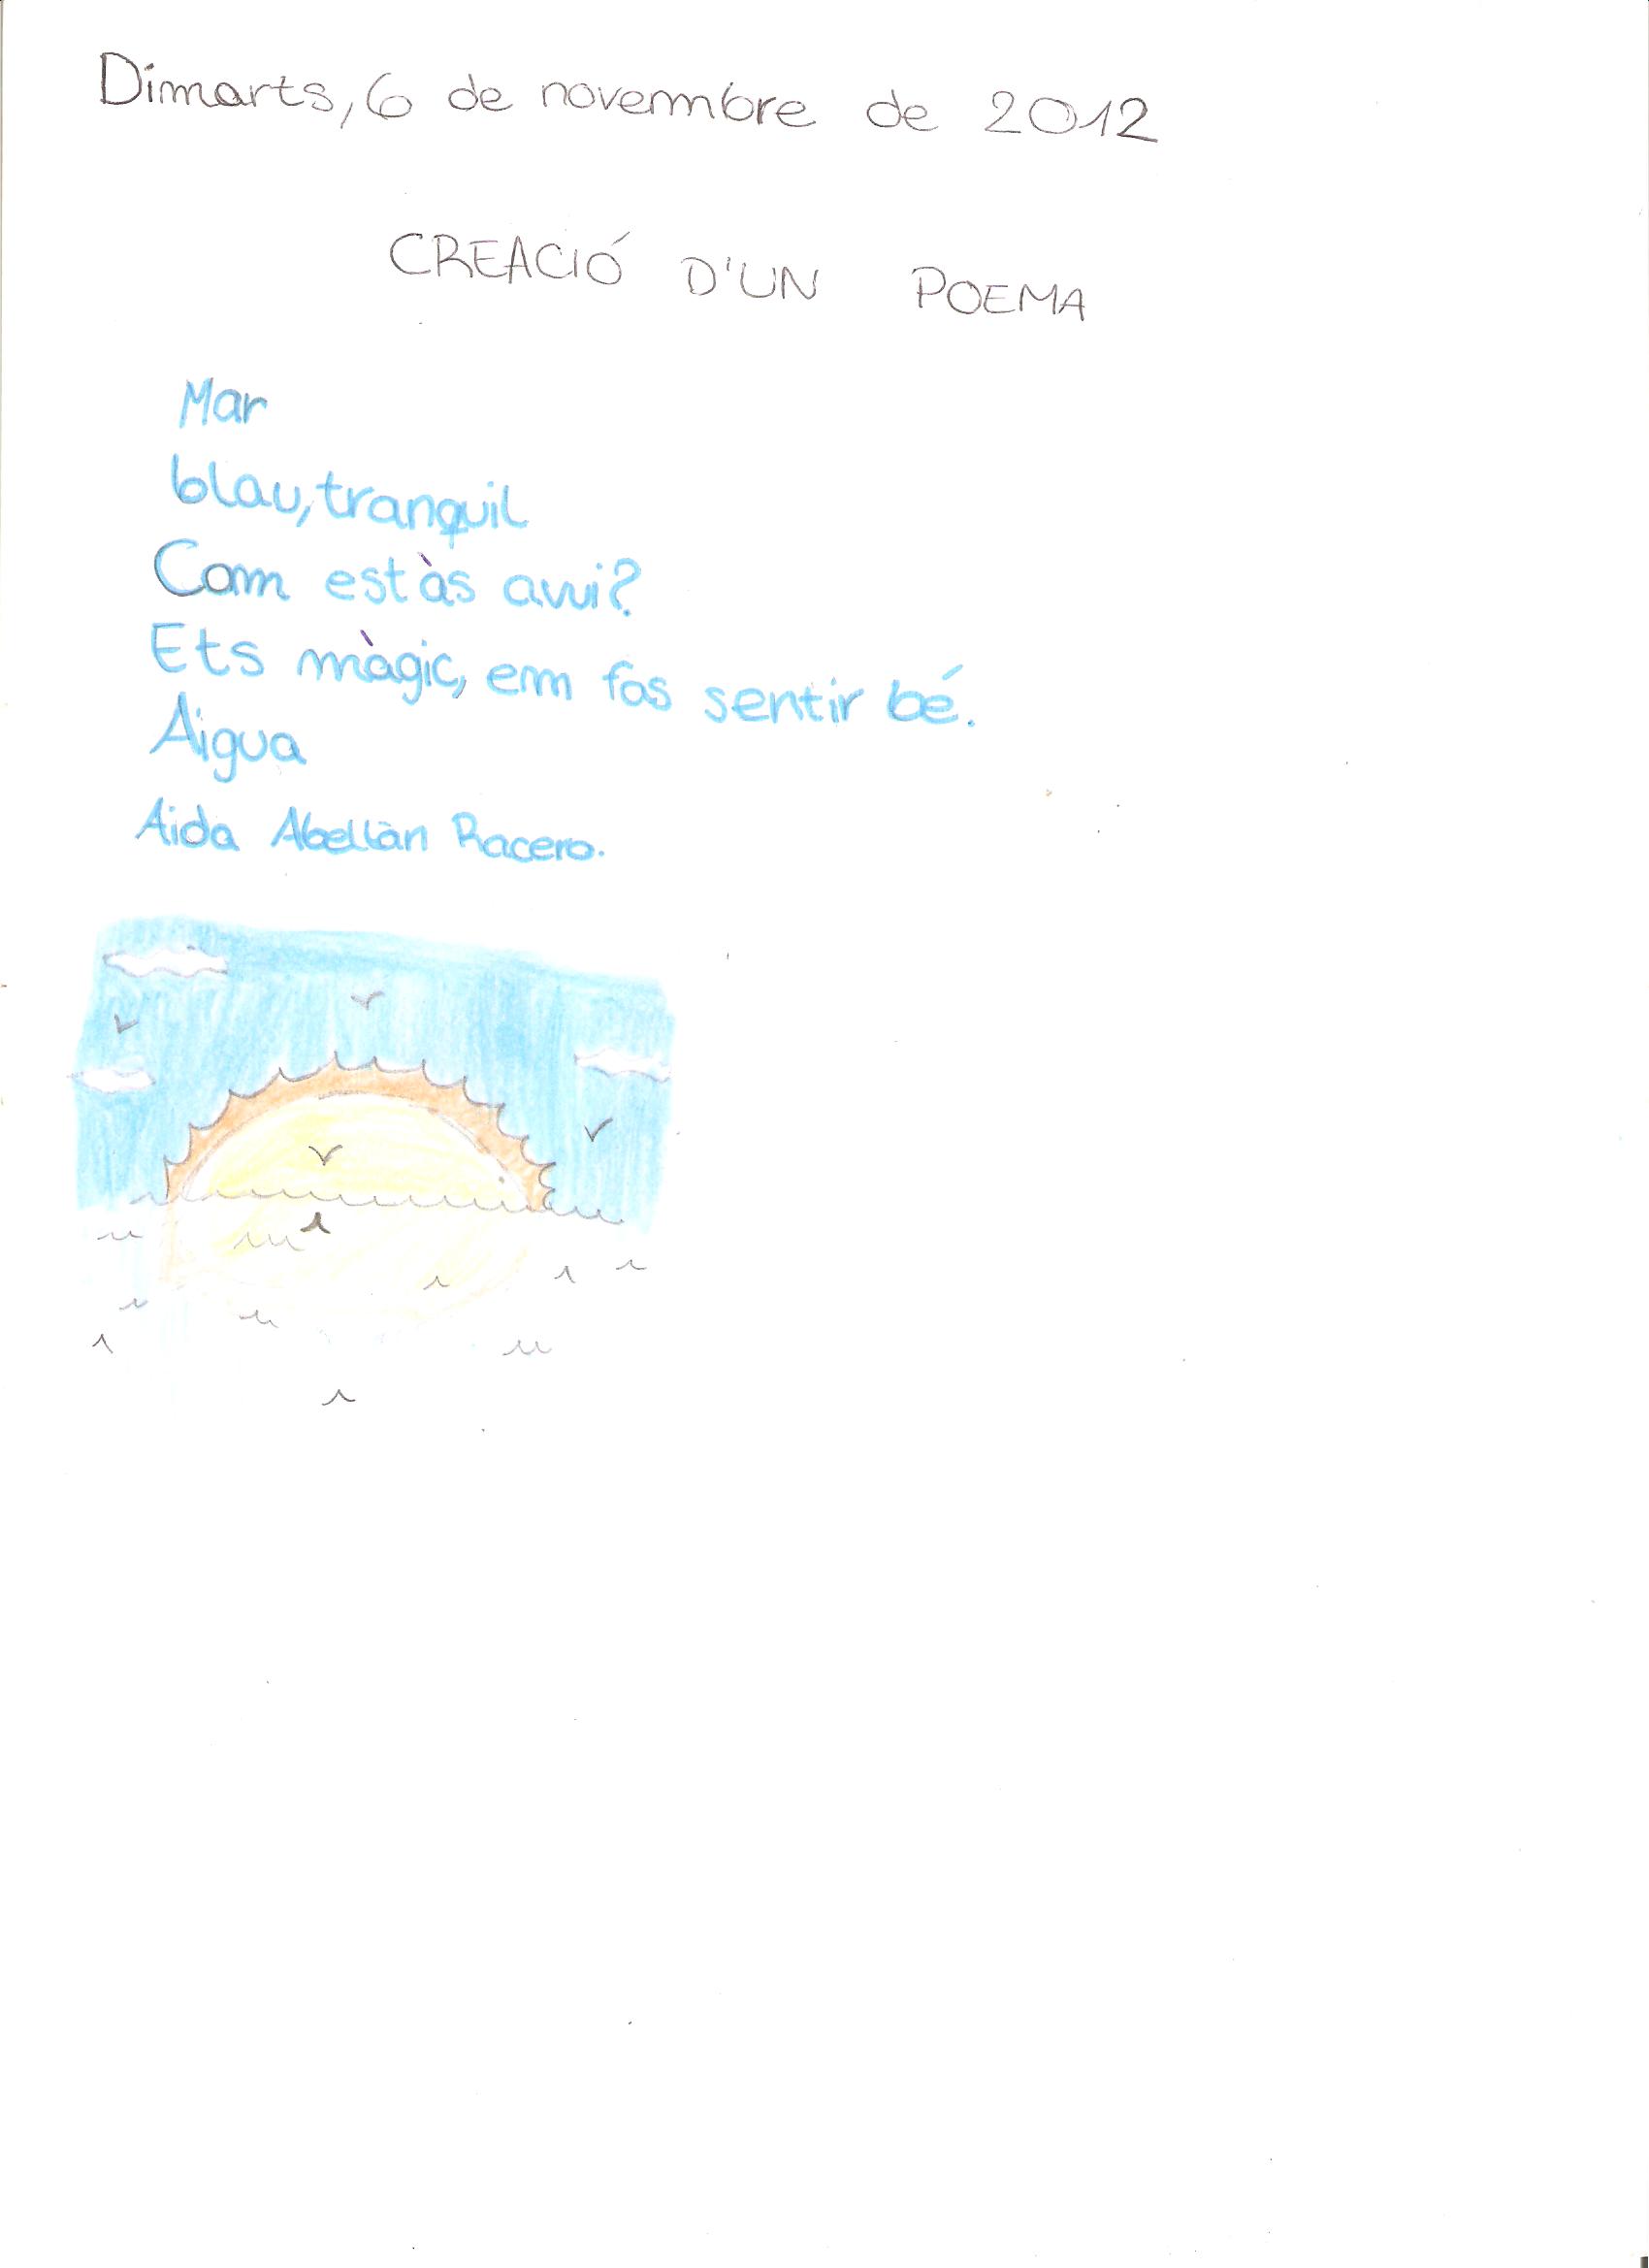 Dimarts, 6 de novembre de 2012
CREACIÓ D'UN POEMA
Mar
blau, tranquil
Com estàs avui?
Ets màgic, em fas sentir bé.
Aigua
Aida Abellàn Racero.